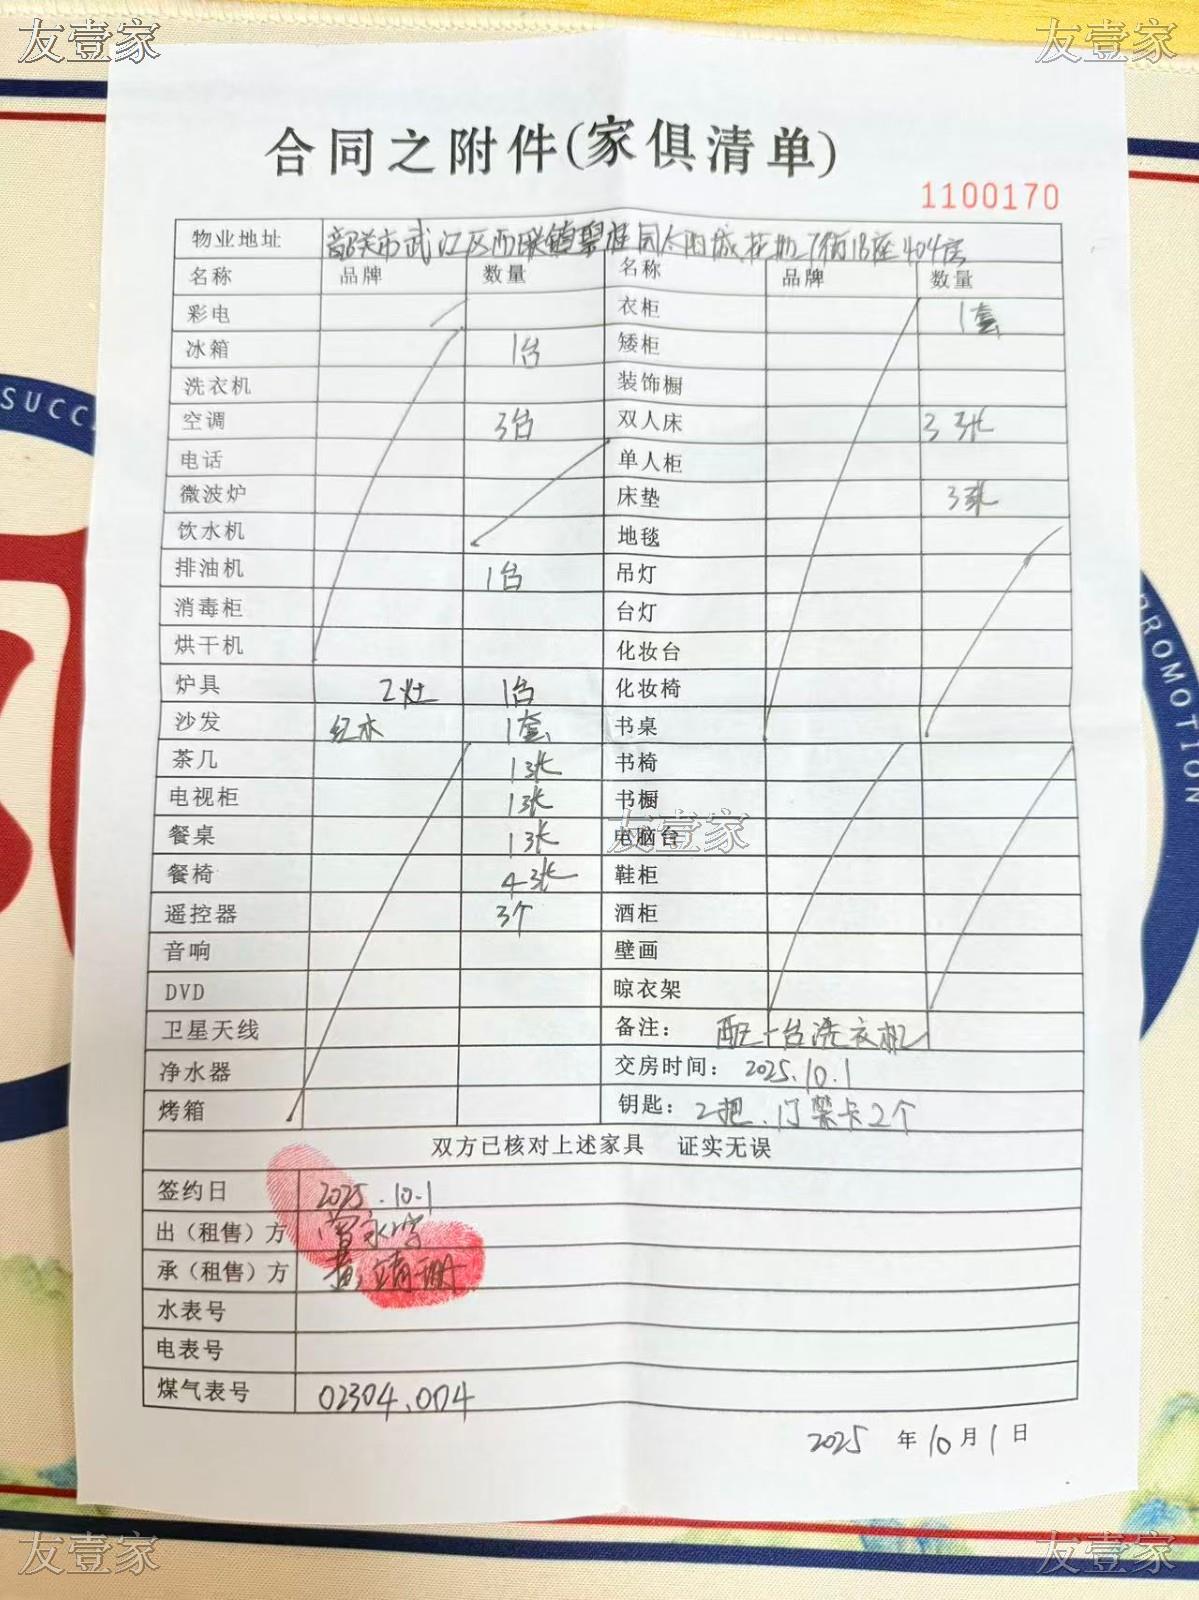 友壹家
友壹家
合同之附件(家俱清单)
1100170
物业地址 韶关市武江区西联镇碧桂园太阳城花地7街1B座404房
名称 品牌 数量 名称 品牌 数量
彩电 衣柜 1套
冰箱 1台 矮柜
洗衣机 装饰橱
空调 3台 双人床 3张
电话 单人柜
微波炉 床垫 3张
饮水机 地毯
排油机 1台 吊灯
消毒柜 台灯
烘干机 化妆台
炉具 2灶 1台 化妆椅
沙发 红木 1套 书桌
茶几 1张 书椅
电视柜 1张 书橱
餐桌 1张 电脑台
友壹家
餐椅 4张 鞋柜
遥控器 3个 酒柜
音响 壁画
DVD 晾衣架
卫星天线 备注: 配一台洗衣机
净水器 交房时间: 2025.10.1
烤箱 钥匙: 2把、门禁卡2个
双方已核对上述家具 证实无误
签约日 2025.10.1
出（租售）方
承（租售）方 黄靖珊
水表号
电表号
煤气表号 02304.004
2025 年 10 月 1 日
SUCC
PROMOTION
友壹家
友壹家